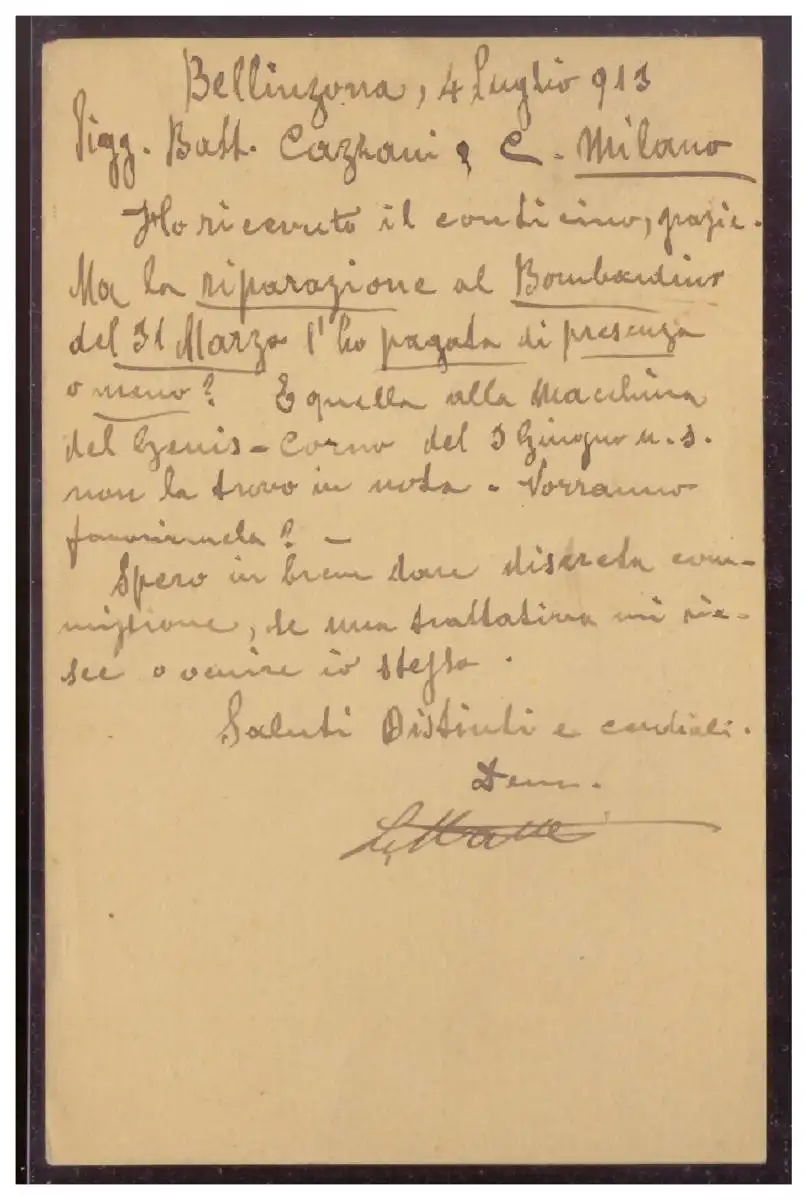 Bellinzona, 4 Luglio 913
Sigg. Batt. Cazzani & C. Milano
Ho ricevuto il conticino, grazie.
Ma la riparazione al Bombardino
del 31 Marzo l'ho pagata di presenza
o meno? E quella alla Macchina
del Genis-Corno del 3 Giugno u.s.
non la trovo in nota. Vorranno
favorirmela? —
Spero in breve dare discreta com-
missione, se una trattativa mi rie-
sce o venire io stesso.
Saluti Distinti e cordiali.
Dem.